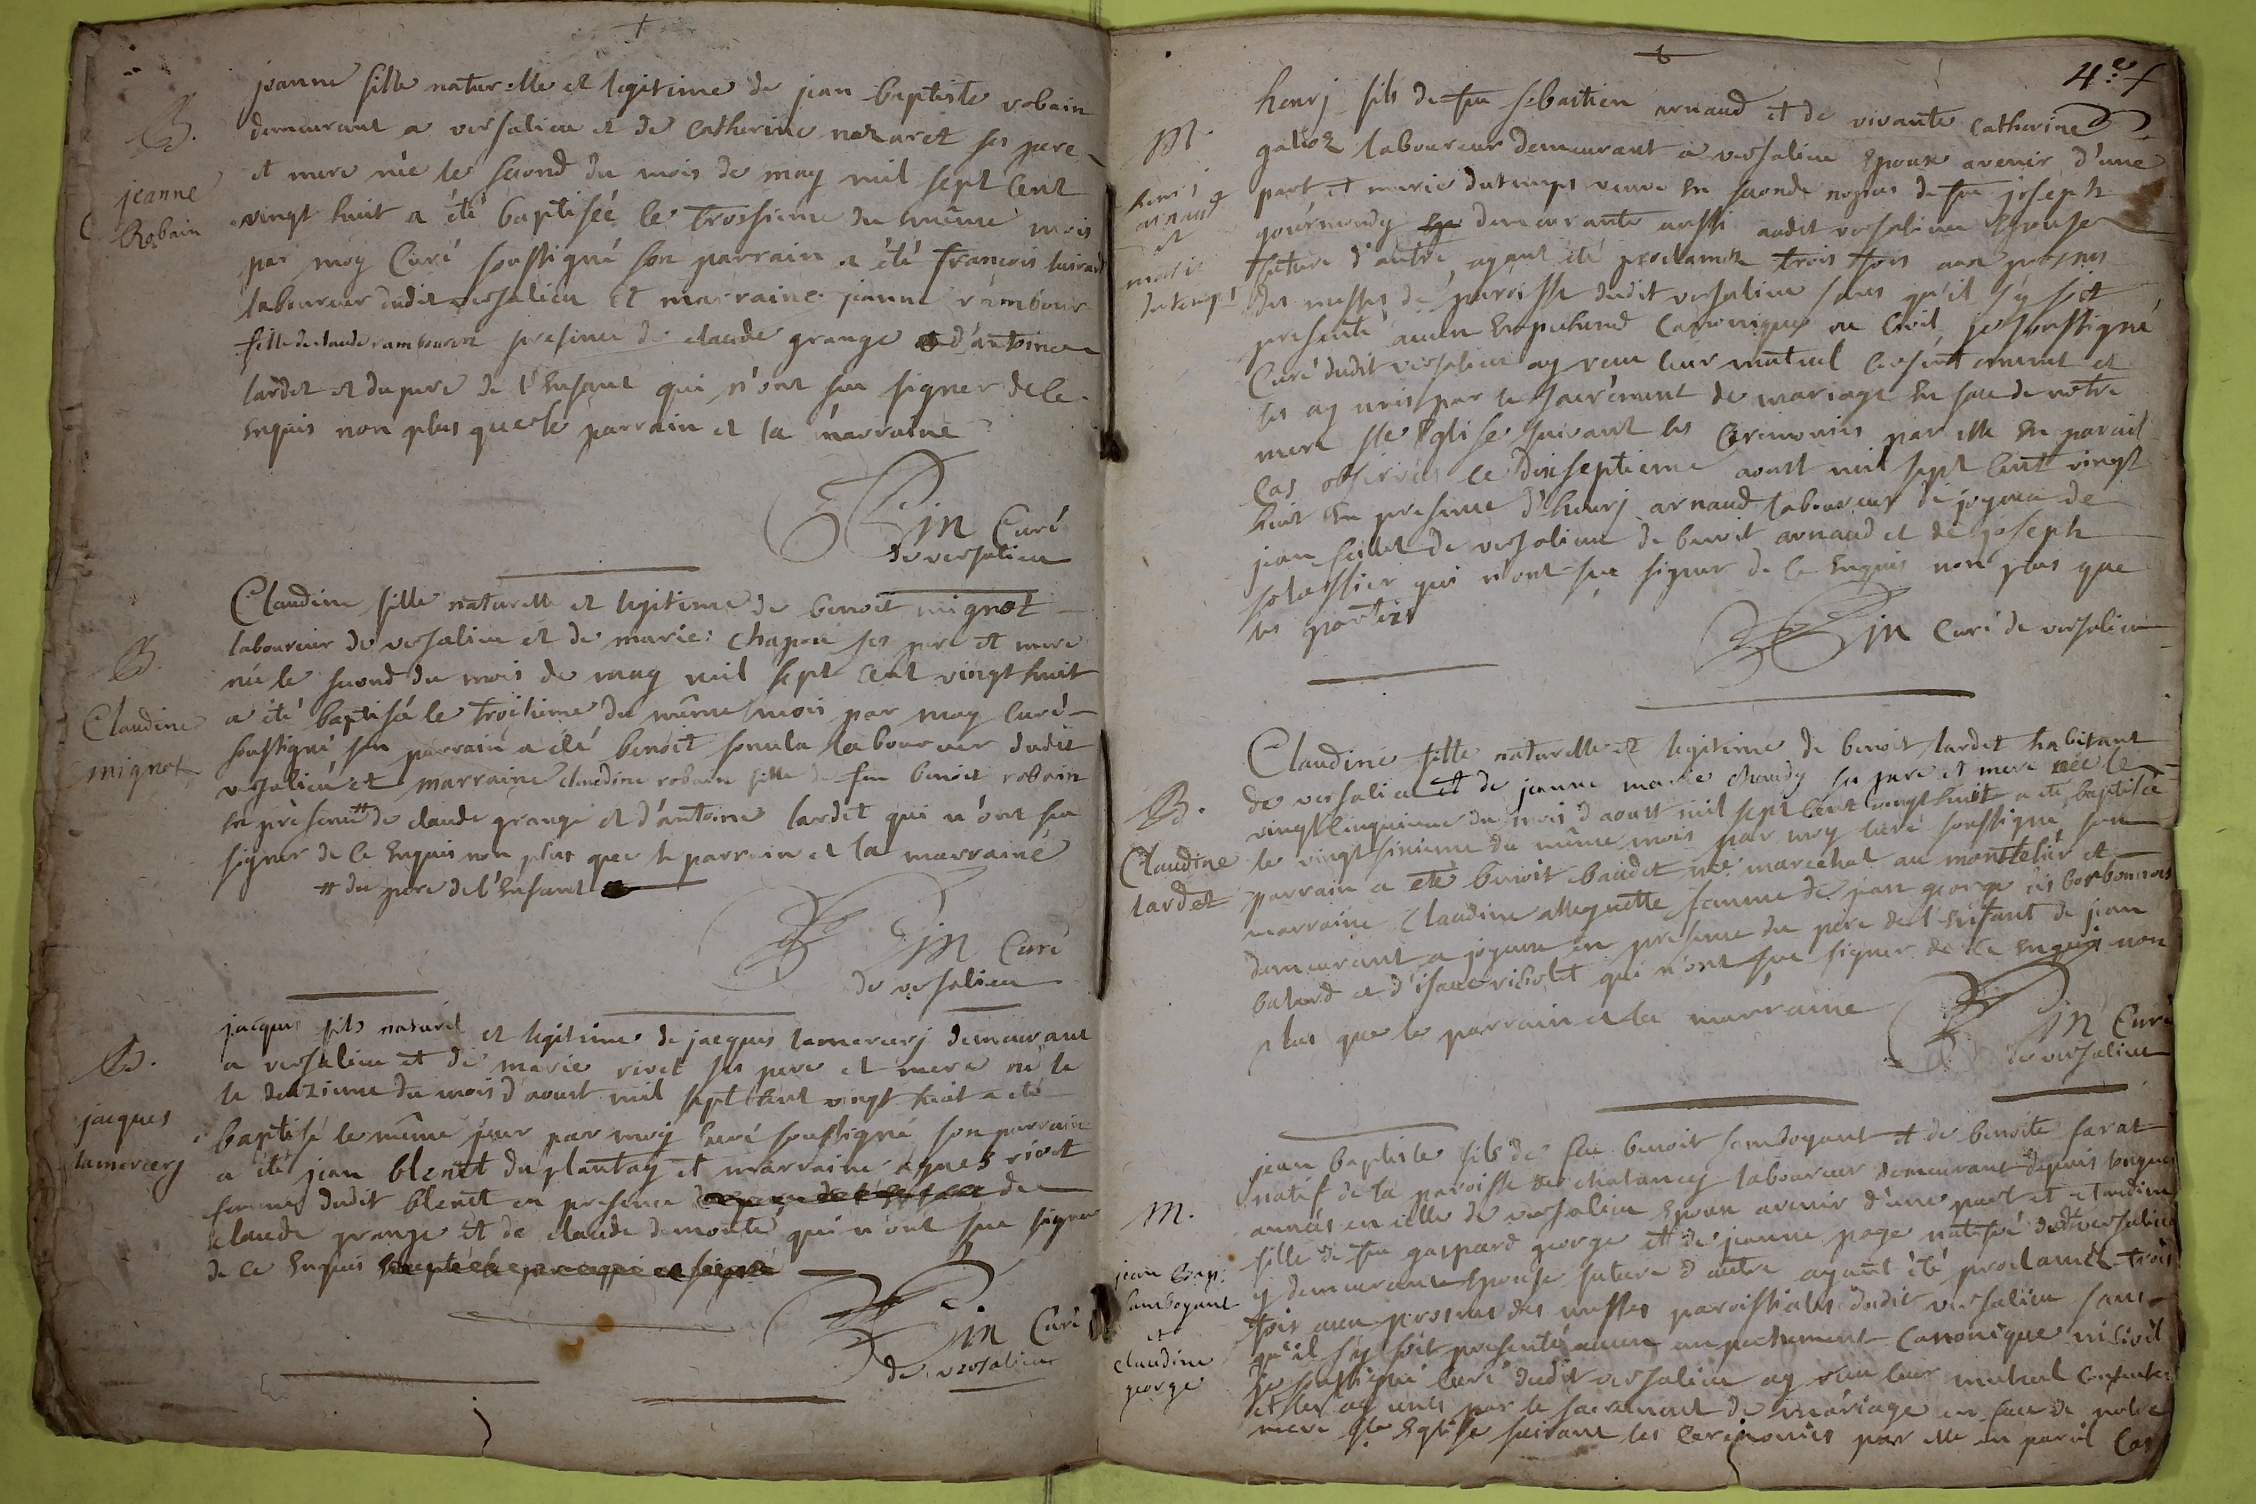 B.
jeanne
Robain
jeanne fille naturelle et legitime de jean baptiste robain
demeurant a versalieu et de catherine nazaret ses pere
et mere née le second du mois de may mil sept cent
vingt huit a été baptisée le troisieme du même mois
par moy Curé soussigné son parrain a été francois
laboureur dudit versalieu et marraine jeanne rambour
fille de claude rambourse presence de claude grange et d'antoine
lardet et du pere de l'Enfant qui n'ont sceu signer de ce
enquis non plus que le parrain et la marraine
Curé
de versalieu
B.
Claudine
mignot
Claudine fille naturelle et legitime de benoit mignot
laboureur de versalieu et de marie chapou ses pere et mere
née le second du mois de may mil sept cent vingt huit
a été baptisée le troisieme du même mois par moy Curé
soussigné, son parrain a été benoit laboureur dudit
versalieu et marraine claudine robain fille de feu benoit robain
en presence # de claude grange et d'antoine lardet qui n'ont sceu
signer de ce Enquis non plus que le parrain et la marraine
# du pere de l'Enfant
Curé
de versalieu
B.
jacques
lamercery
jacques fils naturel et legitime de jacques lamercery demeurant
a versalieu et de marie rivet ses pere et mere né le
le deuzieme du mois d'aoust mil sept cent vingt huit a été
baptisé le même jour par moy Curé soussigné son parrain
a été jean blenet du plantay et marraine agnes rivet
femme dudit blenet en presence de
claude grange et de claude demonte qui n'ont sceu signer
de ce Enquis
Curé
de versalieu
4.e f
M.
henri
arnaud
et
marie
dutemps
henrj fils de feu sebastien arnaud et de vivante catherine
laboureur demeurant a versalieu Epoux avenir d'une
part et marie dutemps veuve en seconde nopces de feu joseph
gourmondy demeurante aussi audit versalieu Epouse
future d'autre, ayant été proclamez trois fois aux prosnes
des messes de paroisse dudit versalieu sans qu'il s'y soit
presenté aucun Empechement Canonique ou Civil je soussigné
Curé dudit versalieu ay receu leur mutuel consentement et
les ay unis par le sacrement de mariage en face de notre
mere ste Eglise suivant les Ceremonies par elle en pareil
Cas observées ce dixseptieme aoust mil sept cent vingt
huit en presence d'henrj arnaud laboureur de joyeux de
jean de versalieu de benoit arnaud et de joseph
qui n'ont sçu signer de ce Enquis non plus que
les parties
Curé de versalieu
B.
Claudine
lardet
Claudine fille naturelle et legitime de benoit lardet habitant
de versalieu et de jeanne marie chaudy ses pere et mere née le
vingt cinquieme du mois d'aoust mil sept cent vingt huit a été baptisée
le vingt sixieme du même mois par moy Curé soussigné son
parrain a été benoit baudet me. marechal au montelier et
marraine Claudine femme de jean george dis borbonnois
demeurant a joyeux en presence du pere de l'Enfant de jean
batard et d'isaac ribolet qui n'ont sçu signer de ce Enquis non
plus que le parrain et la marraine
Curé
de versalieu
M.
jean bap:
et
claudine
george
jean baptiste fils de feu benoit et de benoite farat
natif de la paroisse de chatancey laboureur demeurant depuis longues
années en icelle de versalieu Epoux avenir d'une part et claudine
fille de feu gaspard george et de jeanne page native dudt versalieu
y demeurante Epouse future d'autre ayant été proclamez trois
fois aux prosnes des messes paroissiales dudit versalieu sans
qu'il s'y soit presenté aucun empechement Canonique ni civil
je soussigné Curé dudit versalieu ay receu leur mutuel
et les ay unis par le sacrement de mariage en face de notre
mere ste Eglise suivant les Ceremonies par elle en pareil Cas